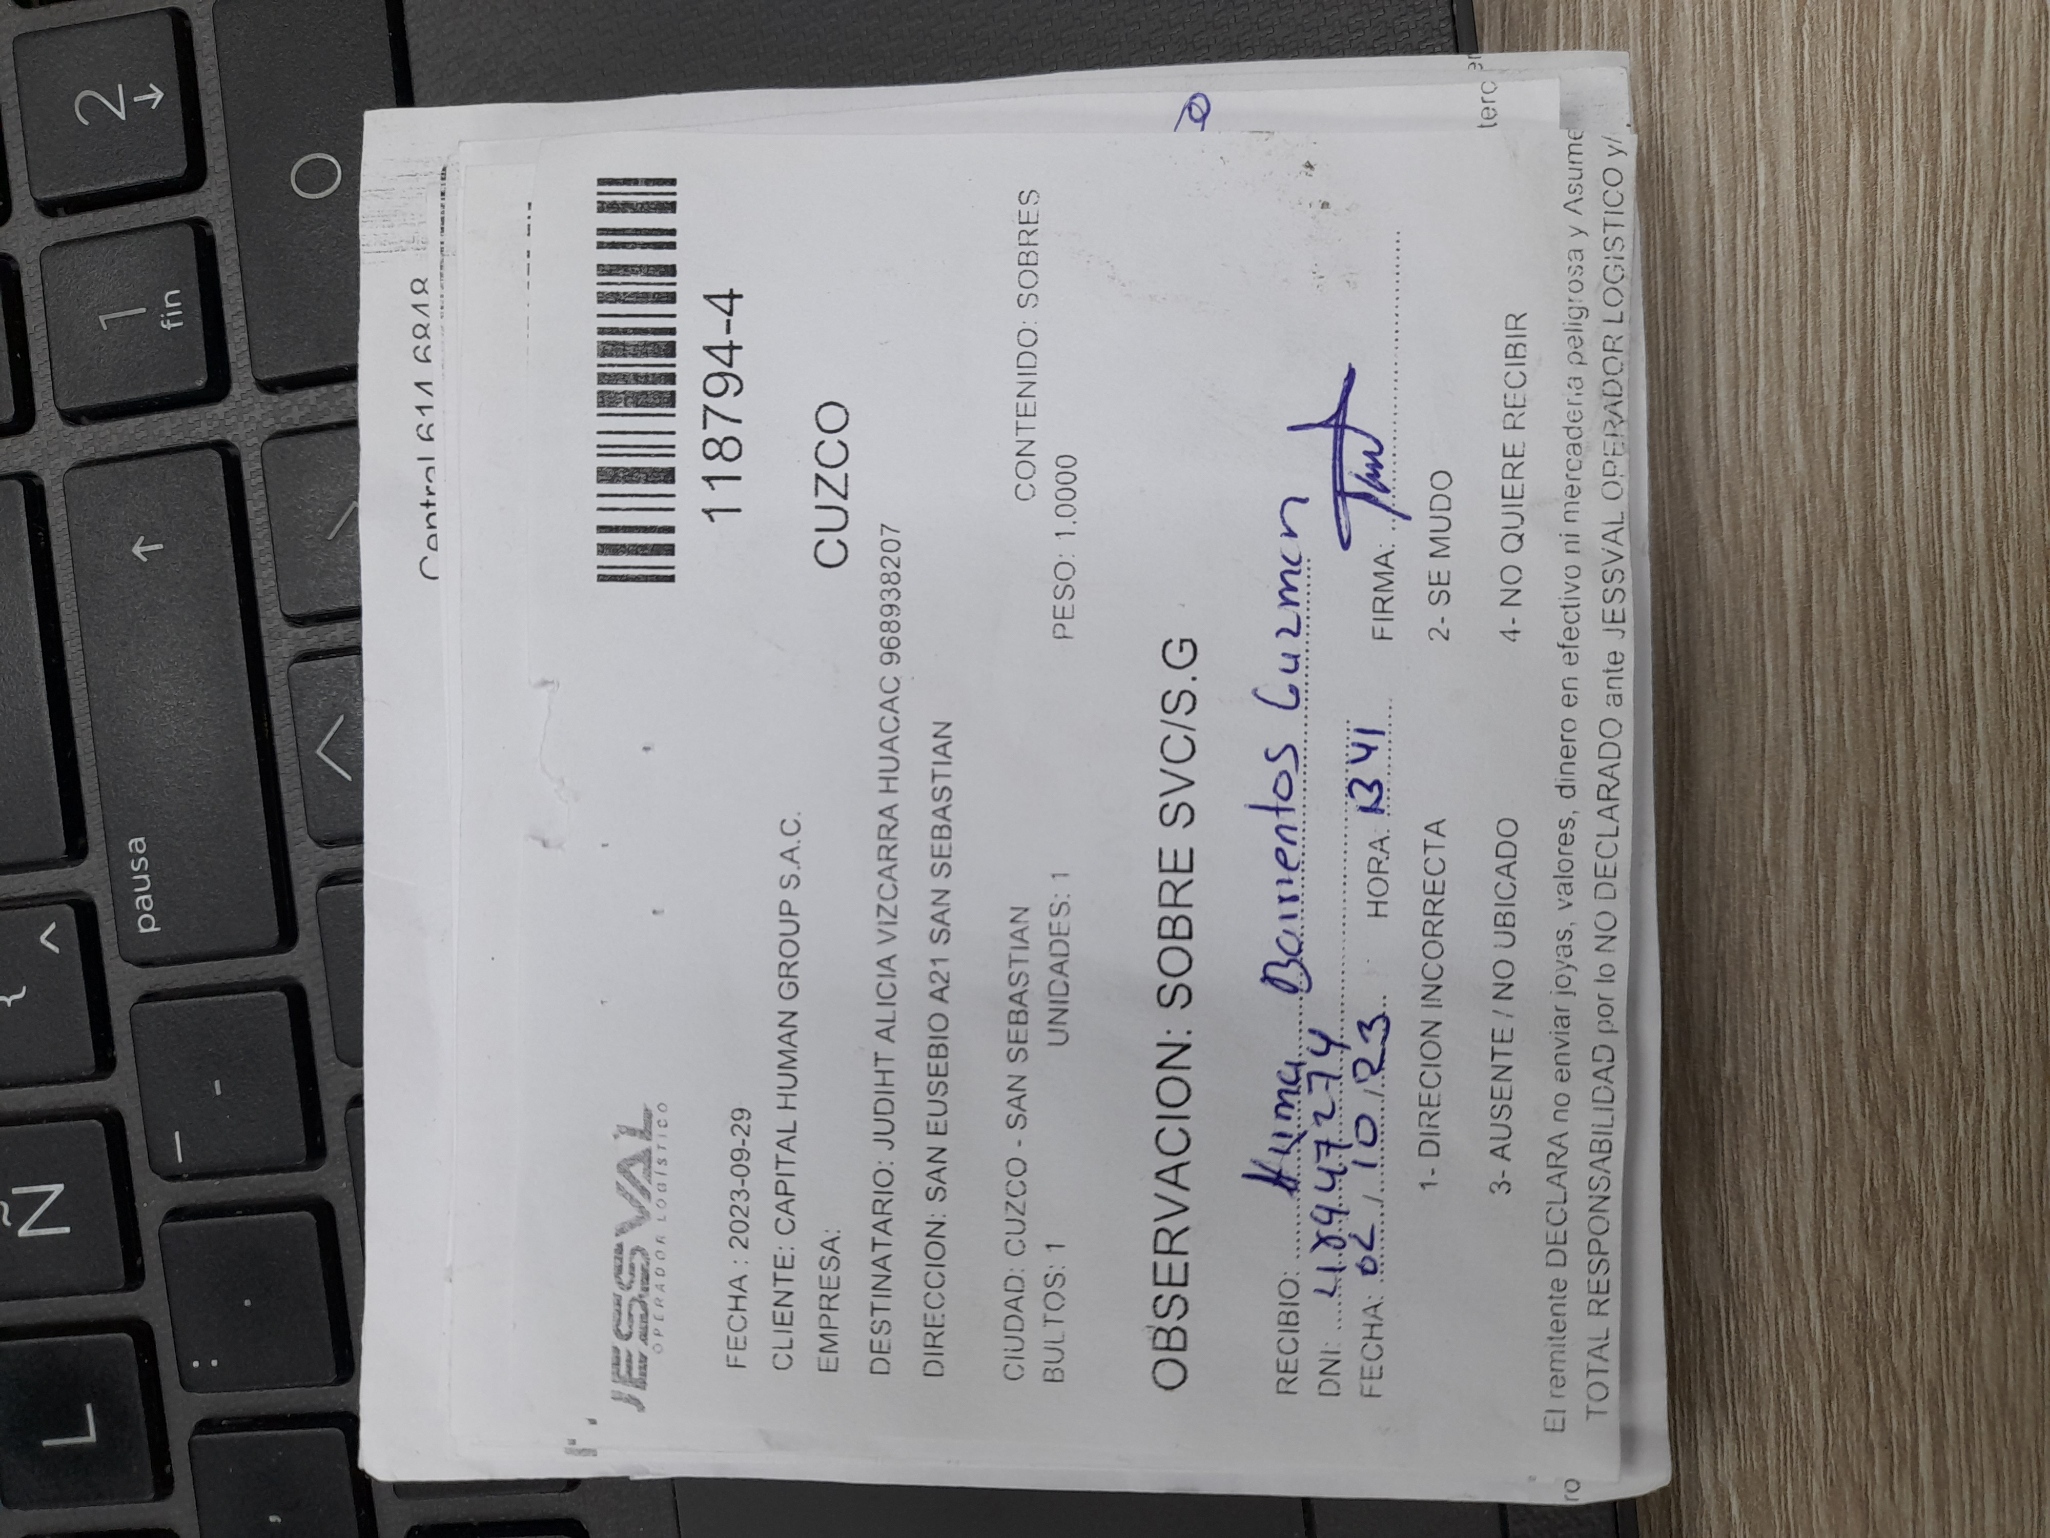 L
Ñ
{
^
pausa
↑
1
fin
2
↓
:
.
_
-
,
0
Central 614 6848
JESSVAL
OPERADOR LOGÍSTICO
118794-4
FECHA : 2023-09-29
CLIENTE: CAPITAL HUMAN GROUP S.A.C.
EMPRESA:
CUZCO
DESTINATARIO: JUDIHT ALICIA VIZCARRA HUACAC 968938207
DIRECCION: SAN EUSEBIO A21 SAN SEBASTIAN
CIUDAD: CUZCO - SAN SEBASTIAN
CONTENIDO: SOBRES
BULTOS: 1 UNIDADES: 1 PESO: 1.0000
OBSERVACION: SOBRE SVC/S.G
RECIBIO: Barrientos Guzman
DNI: 48947274
FECHA: 02/10/23 HORA: 1341 FIRMA:
1- DIRECION INCORRECTA 2- SE MUDO
3- AUSENTE / NO UBICADO 4- NO QUIERE RECIBIR
El remitente DECLARA no enviar joyas, valores, dinero en efectivo ni mercaderia peligrosa y Asume
TOTAL RESPONSABILIDAD por lo NO DECLARADO ante JESSVAL OPERADOR LOGISTICO y/